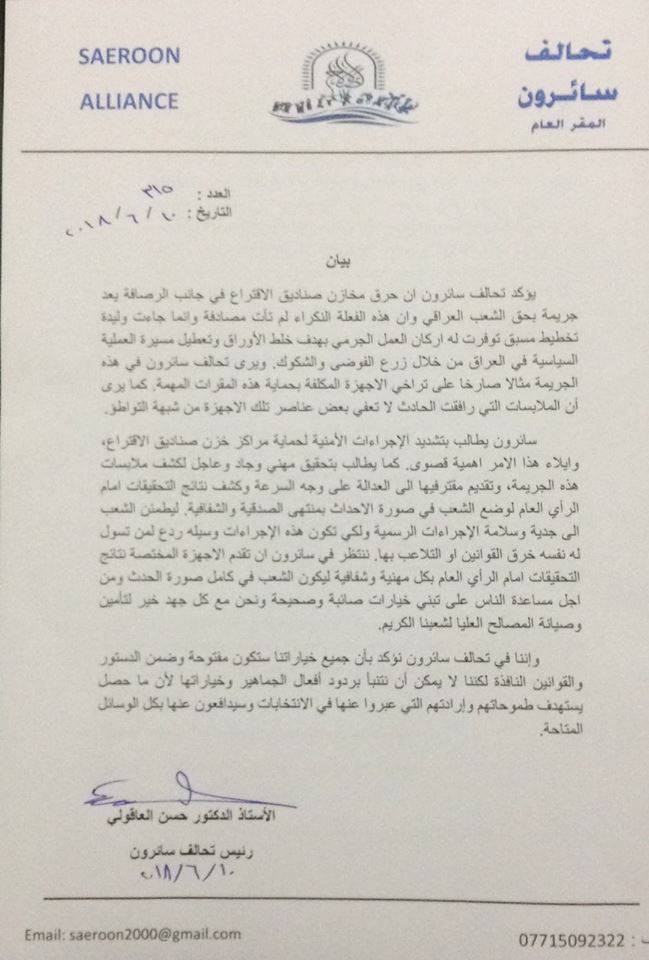 SAEROON
ALLIANCE
تحالف
سائرون
المقر العام
العدد : ٣١٥
التاريخ : ١٠ / ٦ / ٢٠١٨
بيان
يؤكد تحالف سائرون ان حرق مخازن صناديق الاقتراع في جانب الرصافة يعد
جريمة بحق الشعب العراقي وان هذه الفعلة النكراء لم تأت مصادفة وانما جاءت وليدة
تخطيط مسبق توفرت له اركان العمل الجرمي بهدف خلط الأوراق وتعطيل مسيرة العملية
السياسية في العراق من خلال زرع الفوضى والشكوك. ويرى تحالف سائرون في هذه
الجريمة مثالا صارخا على تراخي الاجهزة المكلفة بحماية هذه المقرات المهمة. كما يرى
أن الملابسات التي رافقت الحادث لا تعفي بعض عناصر تلك الاجهزة من شبهة التواطؤ.
سائرون يطالب بتشديد الإجراءات الأمنية لحماية مراكز خزن صناديق الاقتراع،
وايلاء هذا الامر اهمية قصوى. كما يطالب بتحقيق مهني وجاد وعاجل لكشف ملابسات
هذه الجريمة، وتقديم مقترفيها الى العدالة على وجه السرعة وكشف نتائج التحقيقات امام
الرأي العام لوضع الشعب في صورة الاحداث بمنتهى الصدقية والشفافية. ليطمئن الشعب
الى جدية وسلامة الإجراءات الرسمية ولكي تكون هذه الإجراءات وسيله ردع لمن تسول
له نفسه خرق القوانين او التلاعب بها. ننتظر في سائرون ان تقدم الاجهزة المختصة نتائج
التحقيقات امام الرأي العام بكل مهنية وشفافية ليكون الشعب في كامل صورة الحدث ومن
اجل مساعدة الناس على تبني خيارات صائبة وصحيحة ونحن مع كل جهد خير لتأمين
وصيانة المصالح العليا لشعبنا الكريم.
وإننا في تحالف سائرون نؤكد بأن جميع خياراتنا ستكون مفتوحة وضمن الدستور
والقوانين النافذة لكننا لا يمكن أن نتنبأ بردود أفعال الجماهير وخياراتها لأن ما حصل
يستهدف طموحاتهم وإرادتهم التي عبروا عنها في الانتخابات وسيدافعون عنها بكل الوسائل
المتاحة.
الأستاذ الدكتور حسن العاقولي
رئيس تحالف سائرون
٢٠١٨/٦/١٠
Email: saeroon2000@gmail.com
07715092322 :